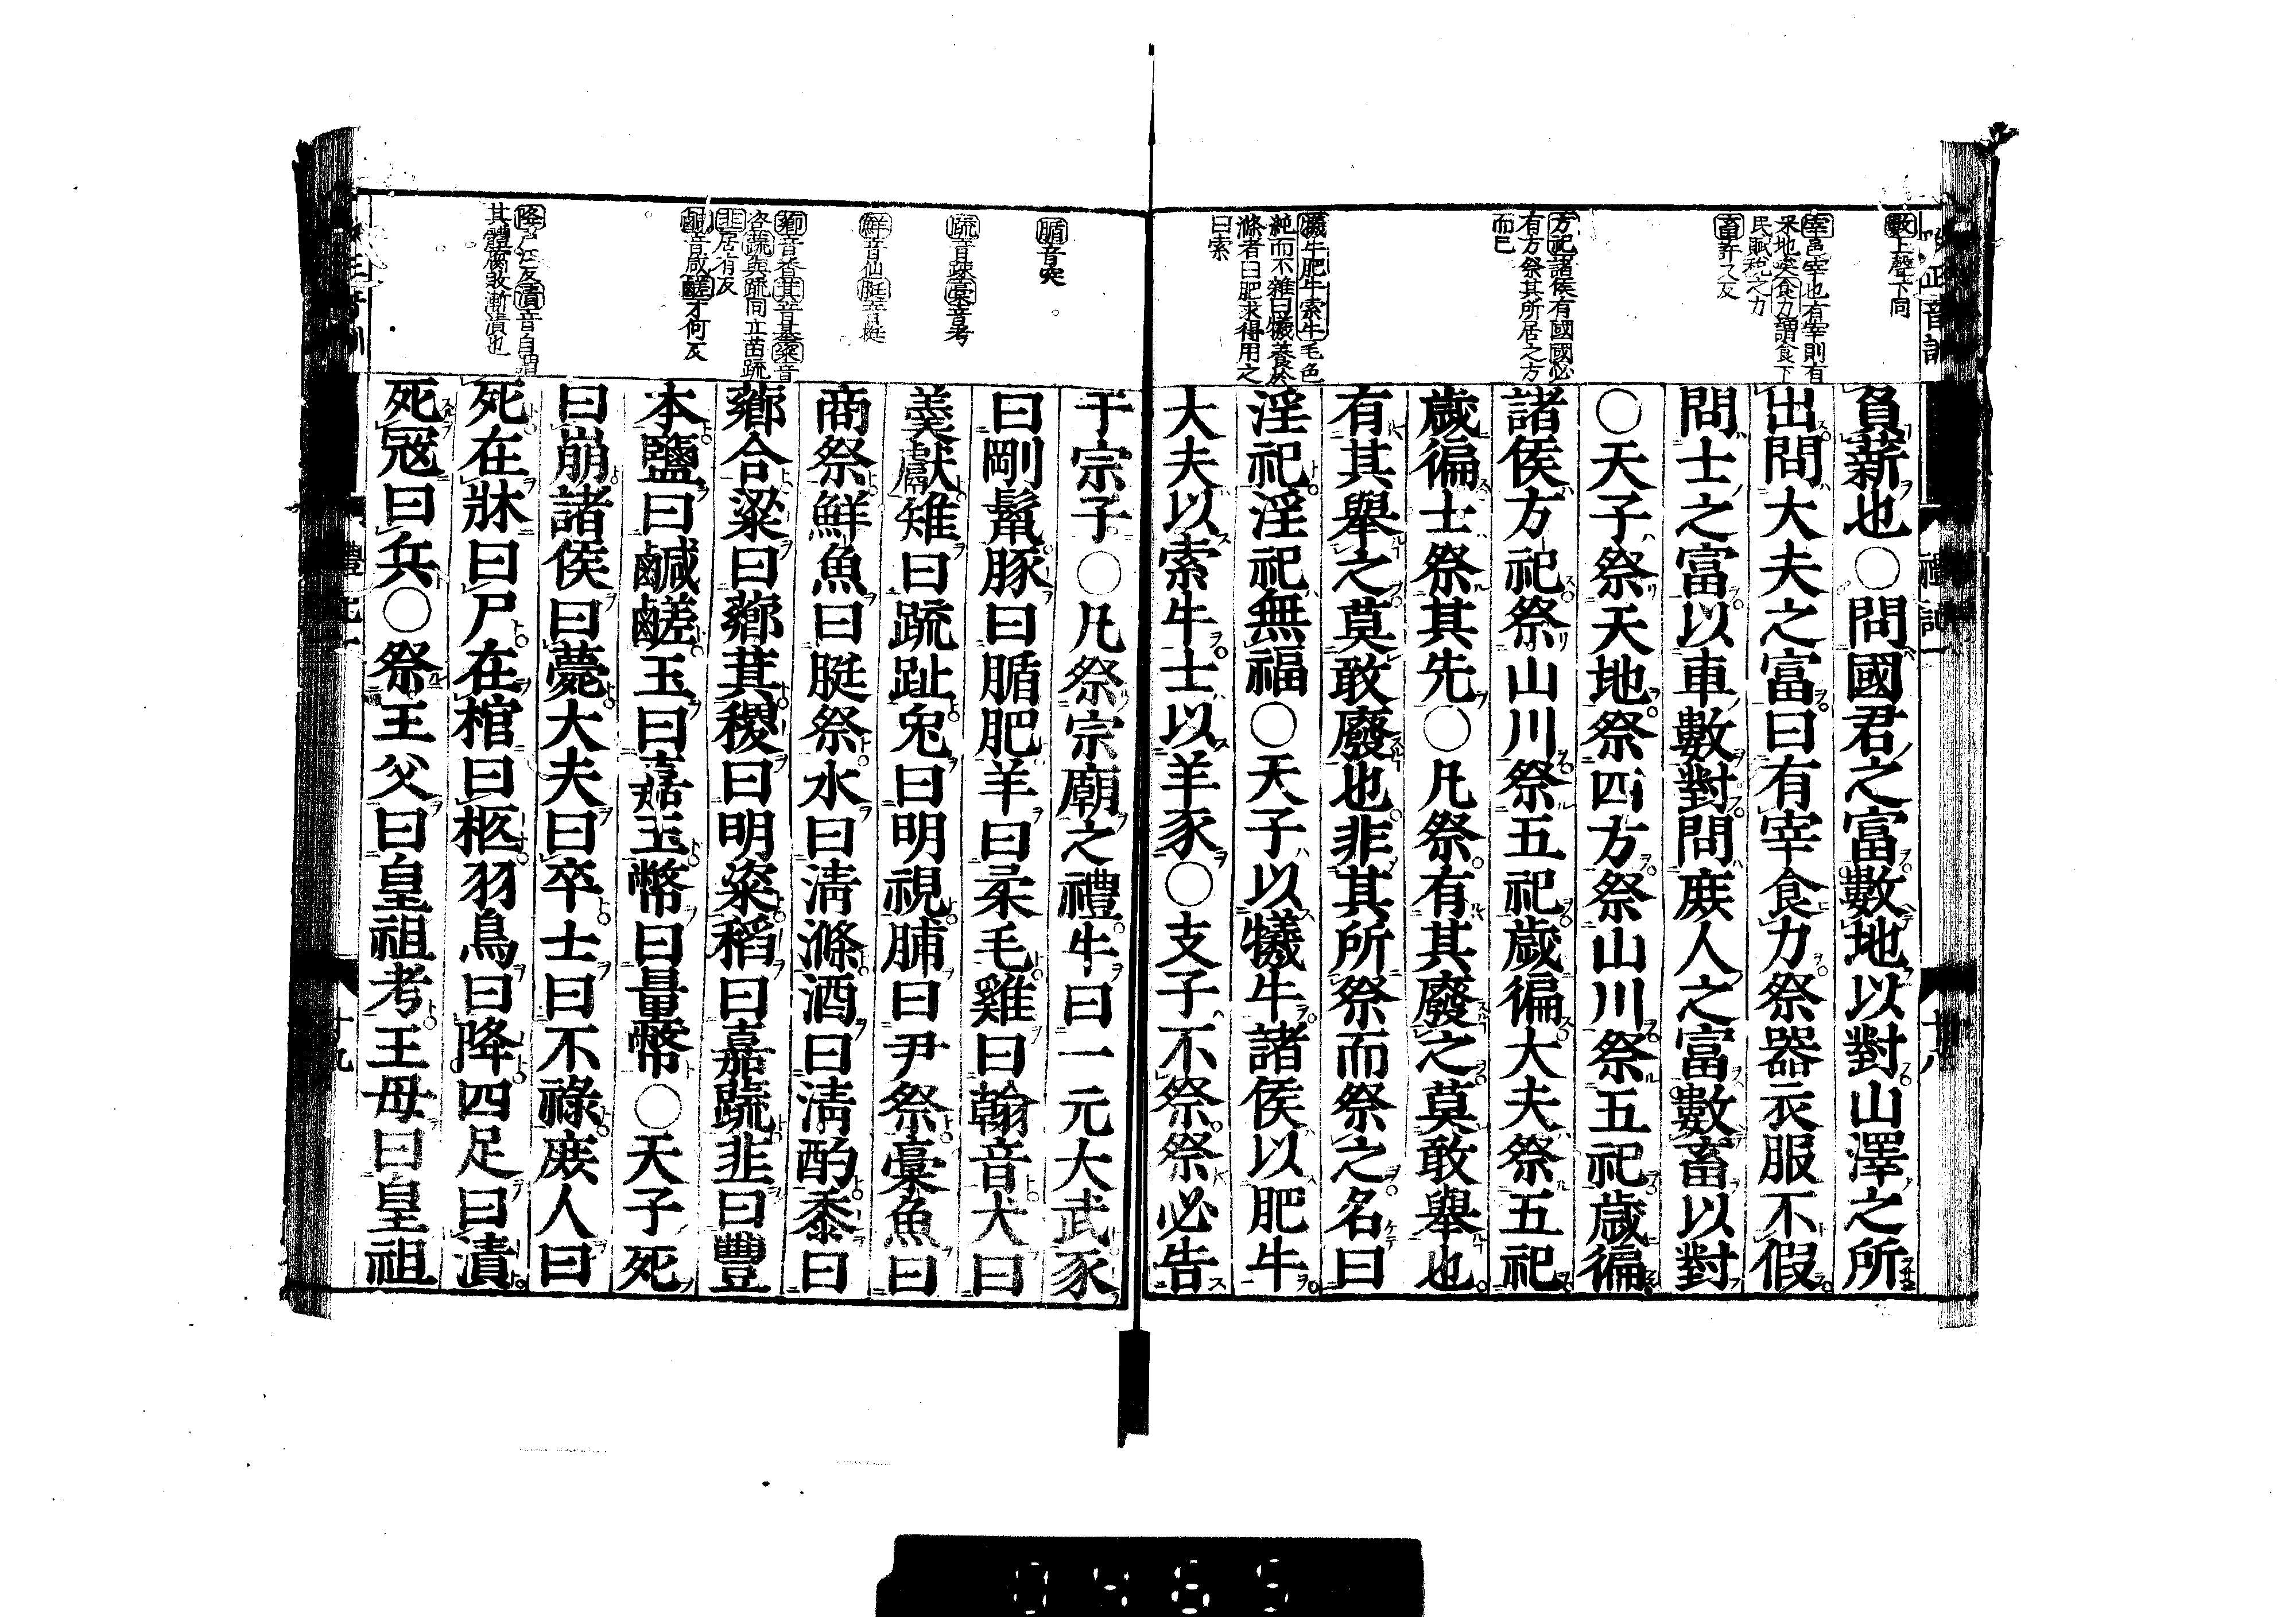 數上聲下同
宰邑宰也有宰則有
采地矣食力謂食下
民賦稅之力
畜許又反
方祀諸侯有國國必
有方祭其所居之方
而已
犧牛肥牛索牛毛色
純而不雜曰犧養於
滌者曰肥求得用之
曰索
負薪也○問國君之富數地以對山澤之所
出問大夫之富曰有宰食力祭器衣服不假
問士之富以車數對問庻人之富數畜以對
○天子祭天地祭四方祭山川祭五祀歲徧
諸侯方祀祭山川祭五祀歲徧大夫祭五祀
歲徧士祭其先○凡祭有其廢之莫敢舉也
有其舉之莫敢廢也非其所祭而祭之名曰
淫祀淫祀無福○天子以犧牛諸侯以肥牛
大夫以索牛士以羊豕○支子不祭祭必告
禮記一
十八
腯音突
疏音疎稾音考
鮮音仙脡音挺
薌音香萁音基粢音
咨蔬與疏同立苗疏
韭居有反
鹹音咸鹺才何反
降戶江反漬音自謂
其體腐敗漸漬也
于宗子○凡祭宗廟之禮牛曰一元大武豕
曰剛鬣豚曰腯肥羊曰柔毛雞曰翰音犬曰
羹獻雉曰疏趾兔曰明視脯曰尹祭稾魚曰
商祭鮮魚曰脡祭水曰淸滌酒曰淸酌黍曰
薌合粱曰薌萁稷曰明粢稻曰嘉蔬韭曰豐
本鹽曰鹹鹺玉曰嘉玉幣曰量幣○天子死
曰崩諸侯曰薨大夫曰卒士曰不祿庻人曰
死在牀曰尸在棺曰柩羽鳥曰降四足曰漬
死寇曰兵○祭王父曰皇祖考王母曰皇祖
十九